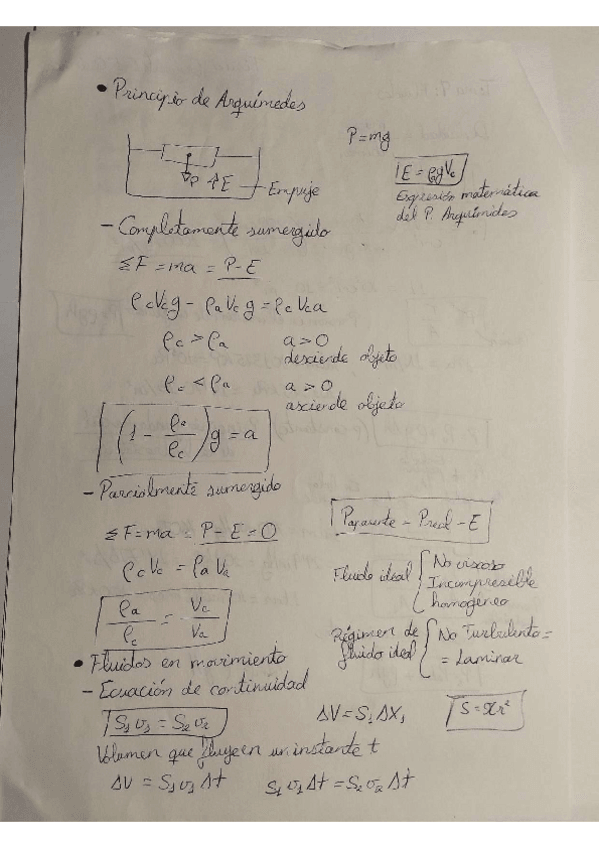 • Principio de Arquímedes
P=mg
P ↑E — Empuje
E = ρgVc
Expresión matemática
del P. Arquímides
- Completamente sumergido
ΣF = ma = P-E
ρcVcg - ρaVcg = ρcVca
ρc > ρa a>0
desciende objeto
ρc < ρa a>0
asciende objeto
(1 - ρa/ρc)g = a
- Parcialmente sumergido
ΣF=ma = P-E=0
Paparente = Preal - E
ρcVc = ρaVa
Fluido ideal { No viscoso
Incompresible
homogéneo
ρa/ρc = Vc/Va
Régimen de
fluido ideal { No Turbulento =
= Laminar
• Fluidos en movimiento
- Ecuación de continuidad
S1v1 = S2v2
ΔV = S1ΔX1
S=πr²
Volumen que fluye en un instante t
ΔV = S1v1Δt S1v1Δt = S2v2Δt